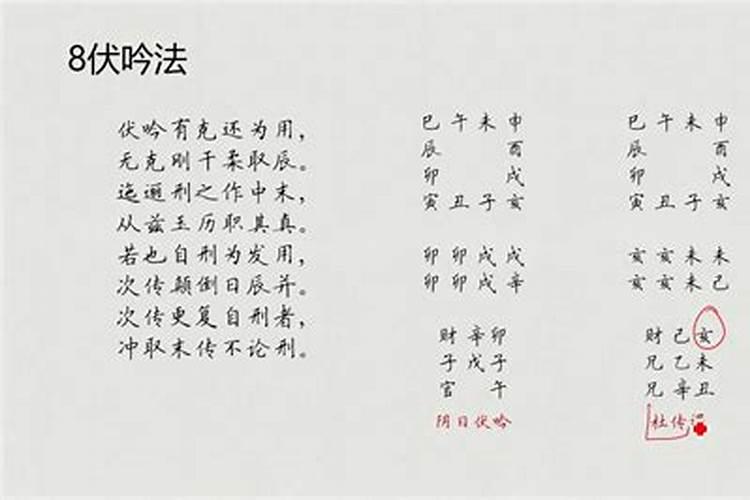 8伏吟法
伏吟有克还为用，
无克刚干柔取辰。
迤逦刑之作中末，
从兹玉历职其真。
若也自刑为发用，
次传颠倒日辰并。
次传更复自刑者，
冲取末传不论刑。
巳午未申
辰 酉
卯 戌
寅丑子亥
卯卯戌戌
卯卯戌辛
财 辛卯
子 戊子
官 午
阴日伏吟
巳午未申
辰 酉
卯 戌
寅丑子亥
亥亥未未
亥亥未己
财 己亥
兄 乙未
兄 辛丑
杜传